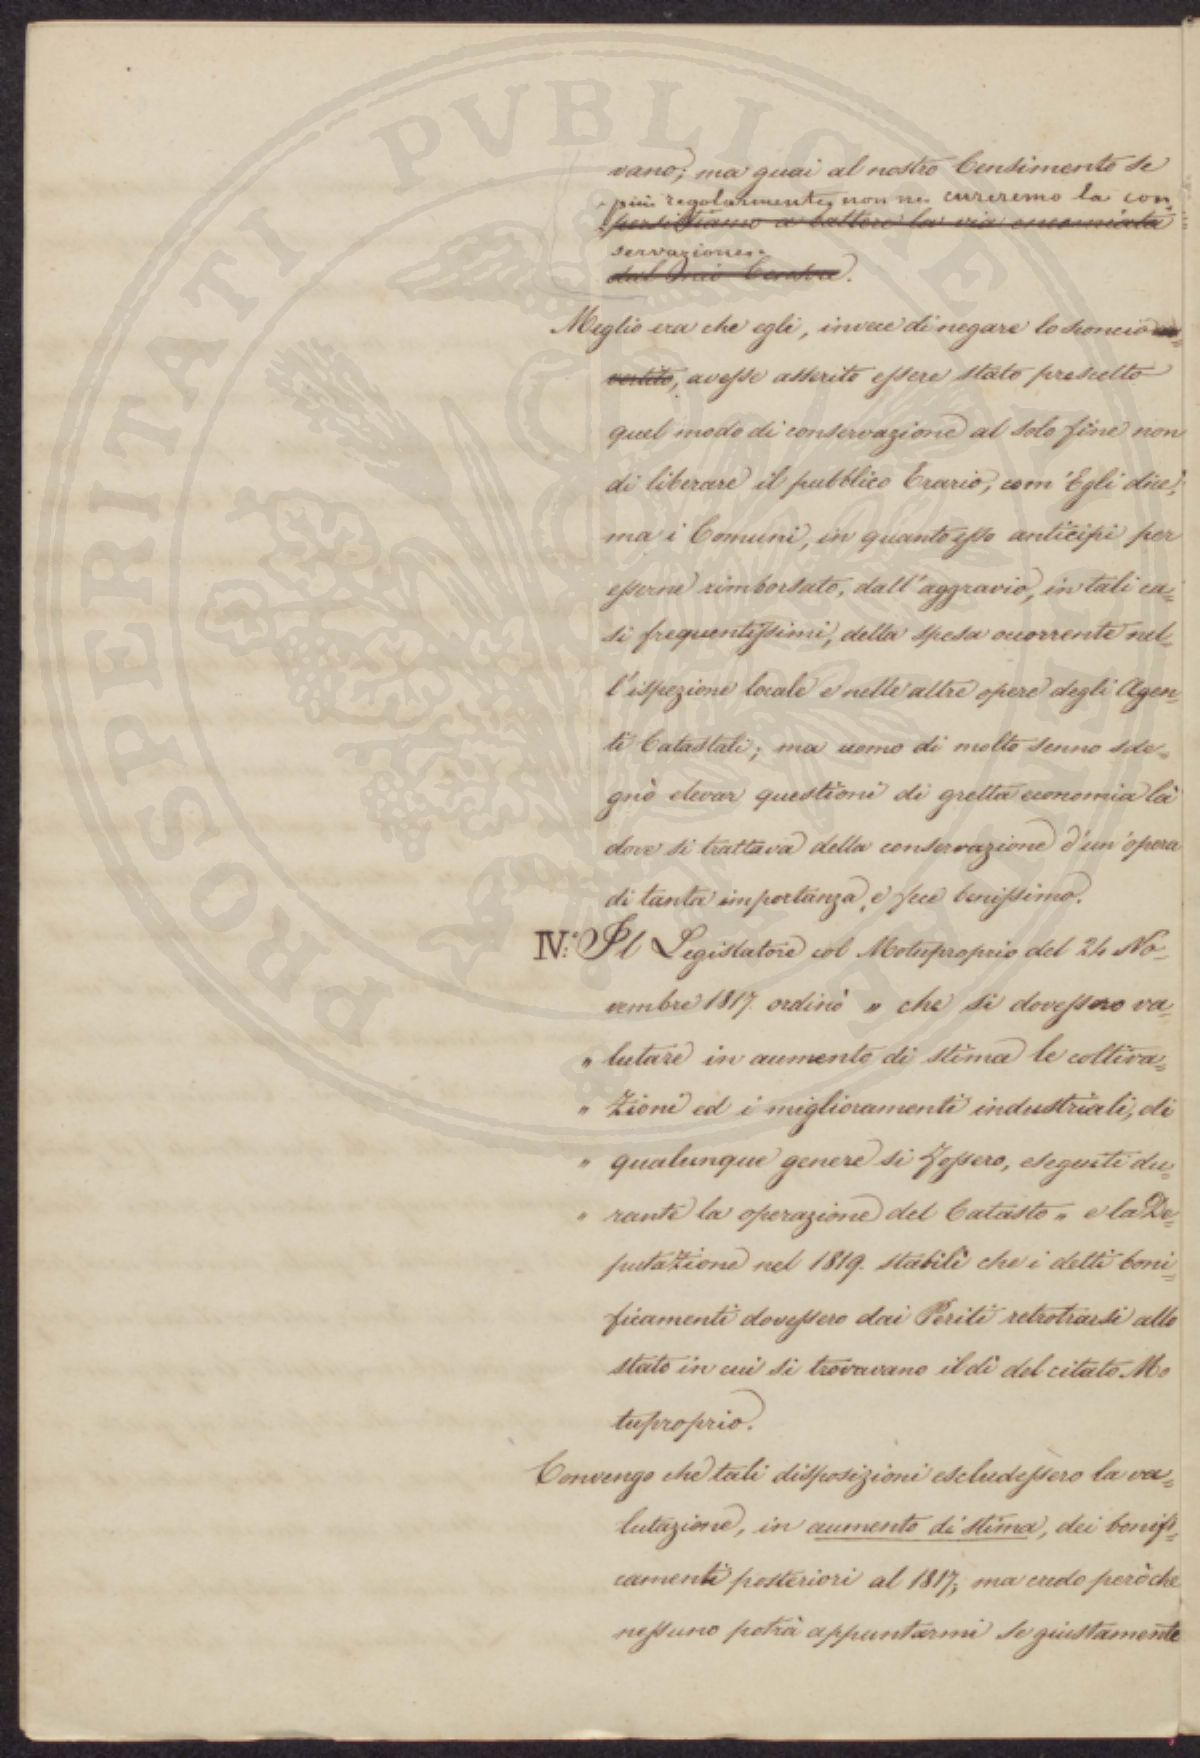 vano; ma guai al nostro Censimento se
più regolarmente non ne cureremo la con=
persistiamo a battere la via encomiata
servazione.
dal mio Censore.
Meglio era che egli, invece di negare lo sconcio av=
vertito, avesse asserito essere stato prescelto
quel modo di conservazione al solo fine non
di liberare il pubblico Erario, com'Egli dice,
ma i Comuni, in quanto esso anticipi per
esserne rimborsato, dall'aggravio, in tali ca=
si frequentissimi, della spesa occorrente nel=
l'ispezione locale e nelle altre opere degli Agen=
ti Catastali; ma uomo di molto senno sde=
gnò elevar questioni di gretta economia là
dove si trattava della conservazione d'un'opera
di tanta importanza, e fece benissimo.
IV.° Il Legislatore col Motuproprio del 24 No=
vembre 1817. ordinò " che si dovessero va=
" lutare in aumento di stima le coltiva=
" zioni ed i miglioramenti industriali, di
" qualunque genere si fossero, eseguiti du=
" rante la operazione del Catasto " e la De=
putazione nel 1819. stabilì che i detti boni=
ficamenti dovessero dai Periti retrotrarsi allo
stato in cui si trovavano il dì del citato Mo
tuproprio.
Convengo che tali disposizioni escludessero la va=
lutazione, in aumento di stima, dei bonifi=
camenti posteriori al 1817; ma credo però che
nessuno potrà appuntarmi se giustamente
PROSPERITATI PVBLICAE